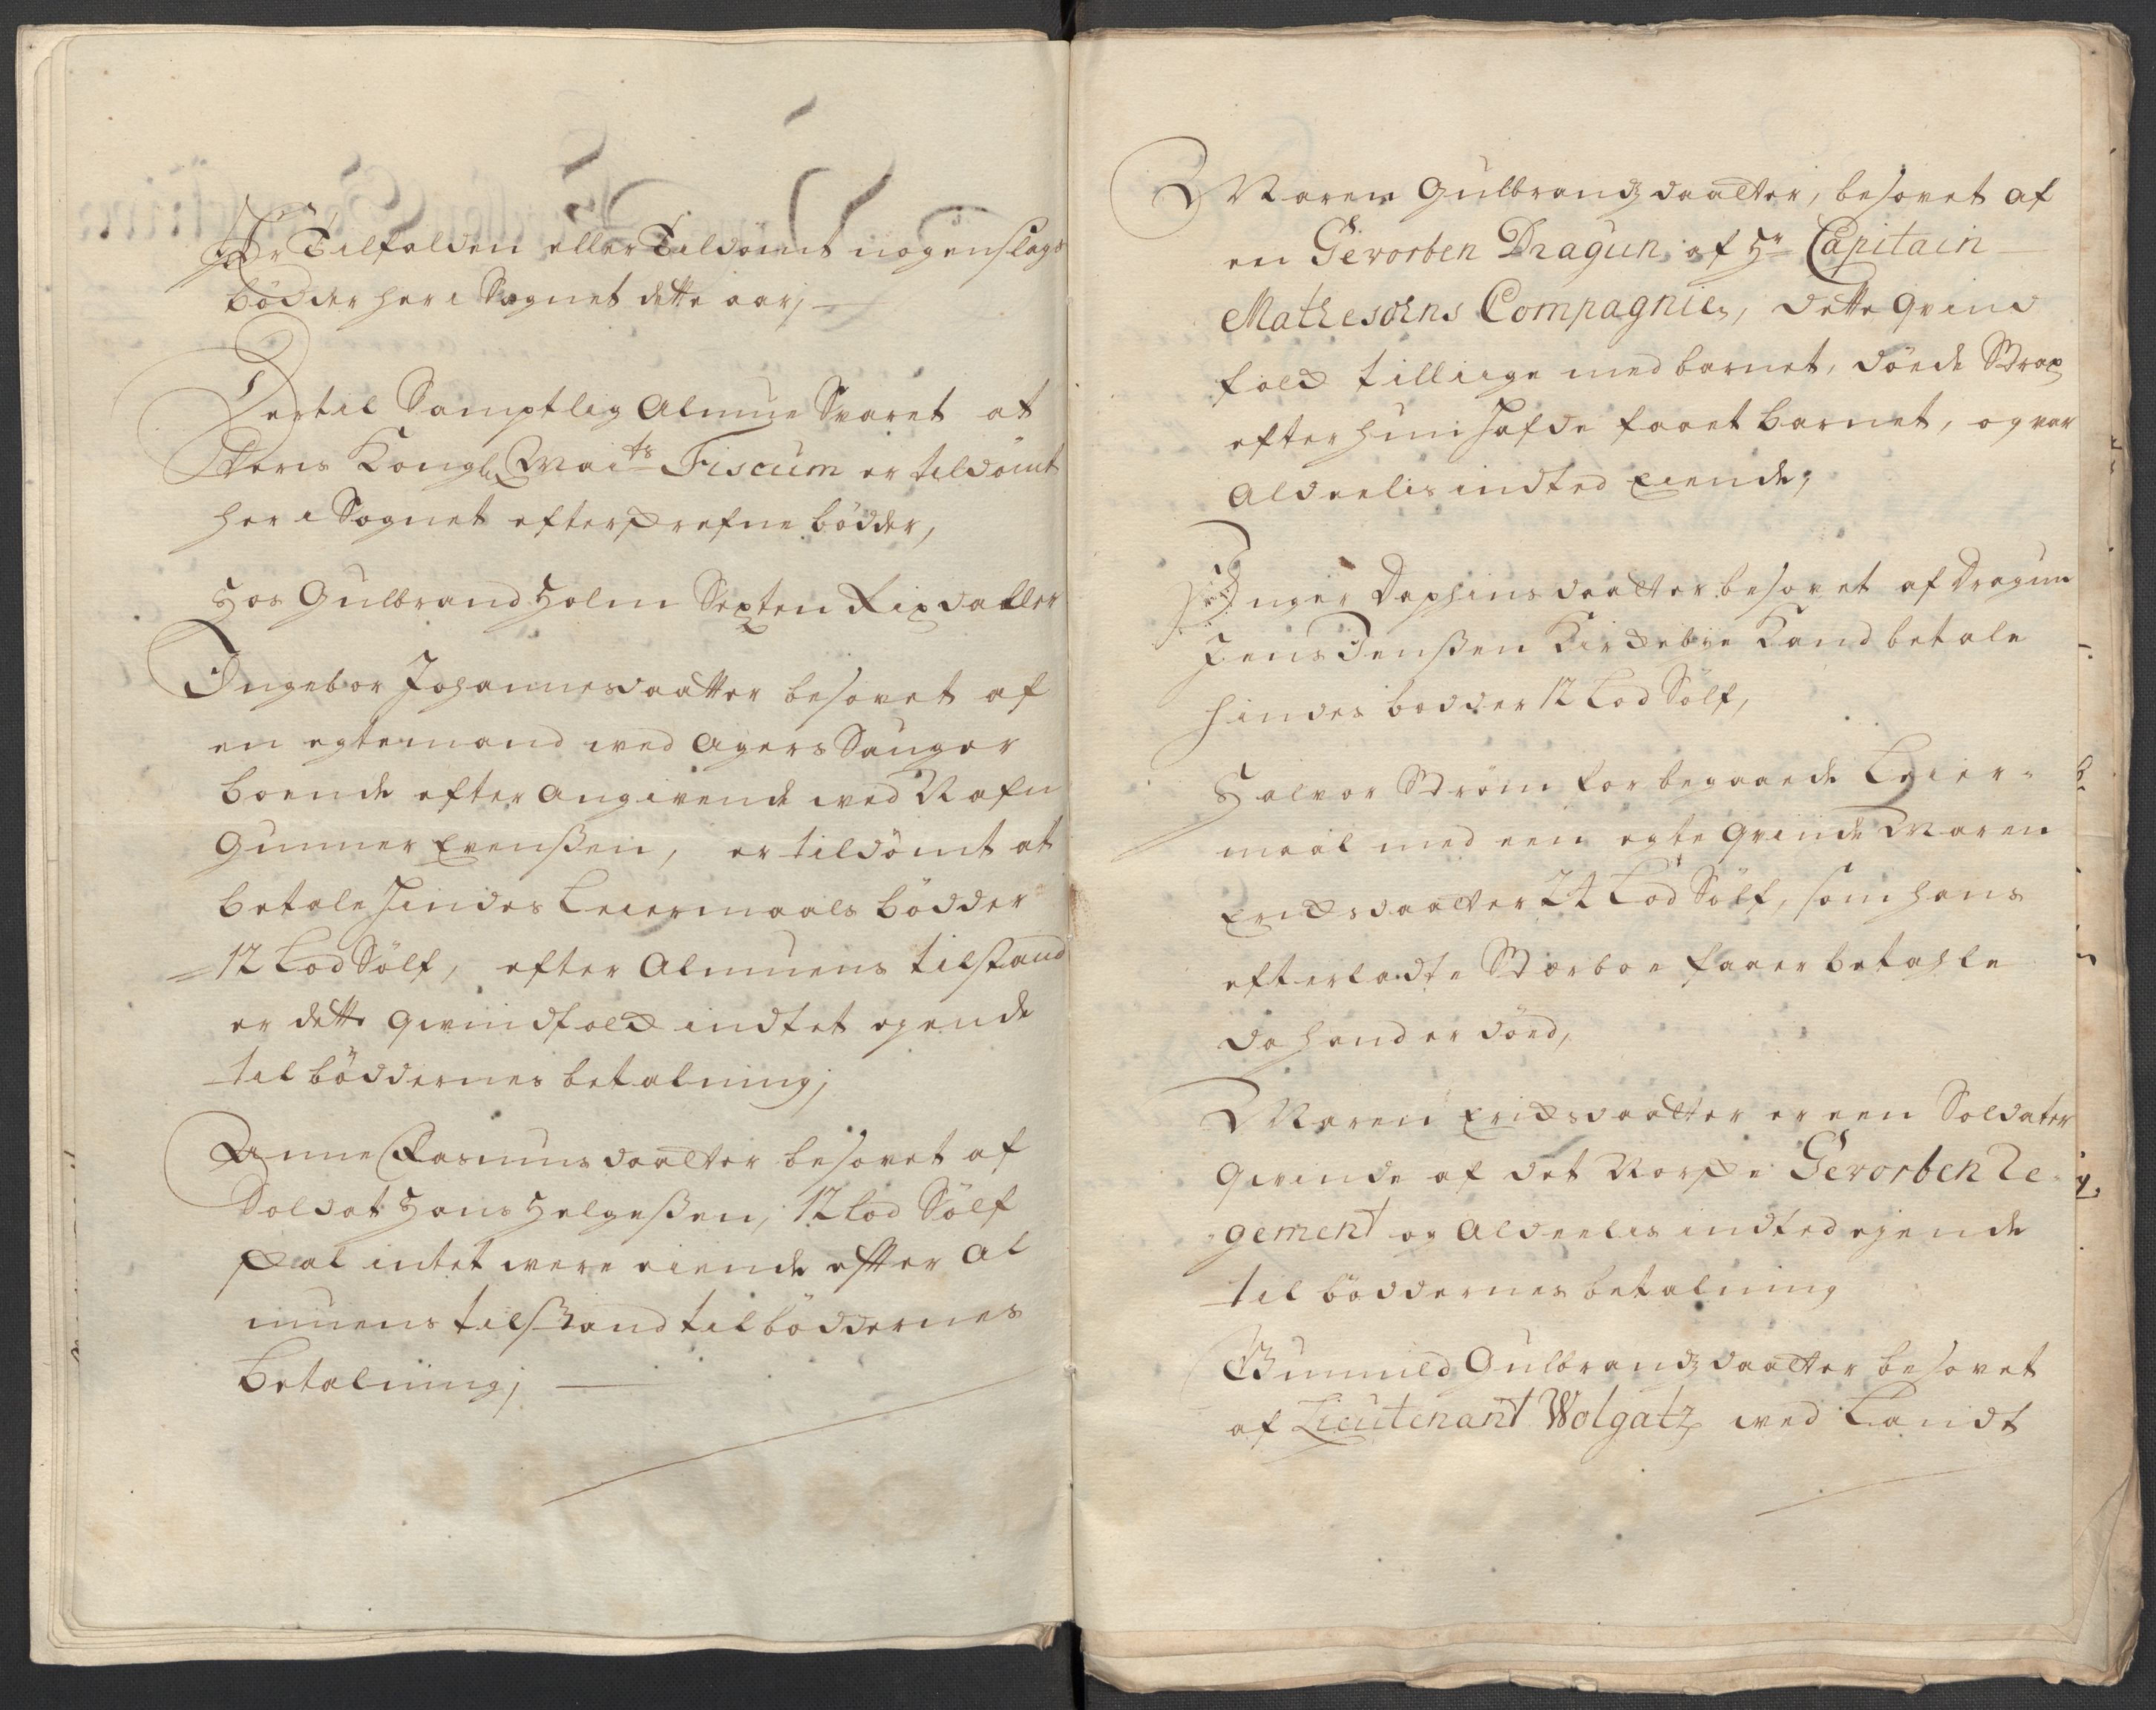 Er Tilfalden eller Tildømt nogenslags
bödder her i Sognet dette aar;
Dertil Samptlig Almue Svaret at
Deris Kongl. Mai.ts Fiscum er tildömt
her i Sognet efterskrefne bödder,
Hos Gulbrand Holm Sexten Rixdaller
Ingebor Johannesdaatter besovet af
en egtemand ved Agers Sauger
boende efter angivende ved Nafn
Gunner Evenßen, er tildömt at
betale hindes Leiermaals bödder
12 Lod Sölf, efter Almuens tilstand
er dette qvindfolk indtet egende
til böddernes betalning;
Anne Rasmusdaatter besovet af
Soldat Hans Helgeßen, 12 lod Sölf
skal intet vere eiende efter Al
muens tilstand til böddernes
betalning;
Maren Gulbrandzdaatter, besovet af
en Gevorben Dragun af Hr Capitain
Mathesohns Compagnie, dette qvind
folk tilliige med barnet, döede Strax
efter hun hafde faaet barnet, og var
aldeelis indted eiende;
Inger Dephinsdaatter besovet af Dragun
Jens Jenßen Kirkebye Kand betale
hindes bødder 12 Lod Sölf,
Halvor Ström for begaaede Leier-
maal med een egte qvinde Maren
Eriksdaatter 24 Lod Sölf, som hans
efterladte Sterboe faaer betahle
da hand er död,
Maren Eriksdaatter er een Soldater
qvinde af det Norske Gevorben Re-
gement og aldeelis indted ejende
til böddernes betalning
Gunnild Gulbrandzdaatter besovet
af Lieutenant Wolgatz ved Landt